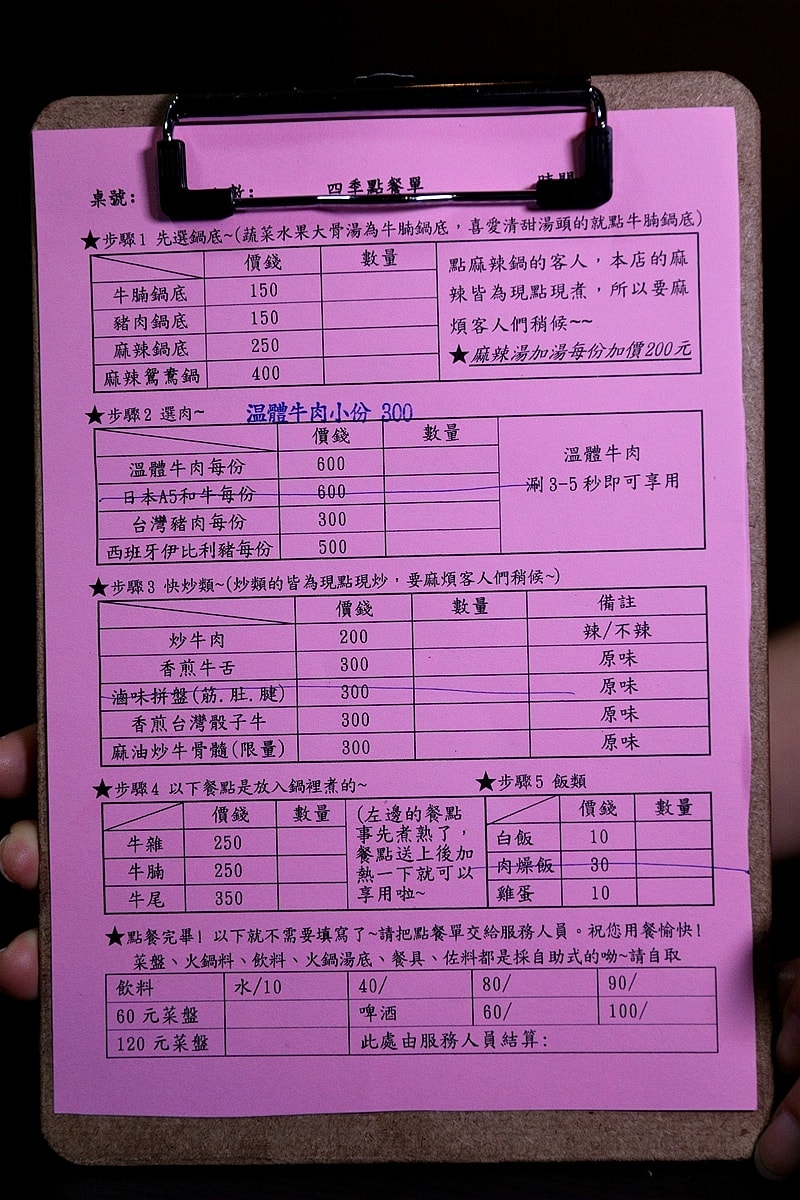 桌號: 數: 四季點餐單 時間
★步驟1 先選鍋底~(蔬菜水果大骨湯為牛腩鍋底，喜愛清甜湯頭的就點牛腩鍋底)
價錢 數量
牛腩鍋底 150
豬肉鍋底 150
麻辣鍋底 250
麻辣鴛鴦鍋 400
點麻辣鍋的客人，本店的麻
辣皆為現點現煮，所以要麻
煩客人們稍候~~
★麻辣湯加湯每份加價200元
★步驟2 選肉~ 温體牛肉小份 300
價錢 數量
溫體牛肉每份 600
日本A5和牛每份 600
台灣豬肉每份 300
西班牙伊比利豬每份 500
溫體牛肉
涮3-5秒即可享用
★步驟3 快炒類~(炒類的皆為現點現炒，要麻煩客人們稍候~)
價錢 數量 備註
炒牛肉 200 辣/不辣
香煎牛舌 300 原味
滷味拼盤(筋.肚.腱) 300 原味
香煎台灣骰子牛 300 原味
麻油炒牛骨髓(限量) 300 原味
★步驟4 以下餐點是放入鍋裡煮的~
價錢 數量
牛雜 250
牛腩 250
牛尾 350
(左邊的餐點
事先煮熟了，
餐點送上後加
熱一下就可以
享用啦~
★步驟5 飯類
價錢 數量
白飯 10
肉燥飯 30
雞蛋 10
★點餐完畢! 以下就不需要填寫了~請把點餐單交給服務人員。祝您用餐愉快!
菜盤、火鍋料、飲料、火鍋湯底、餐具、佐料都是採自助式的呦~請自取
飲料 水/10 40/ 80/ 90/
60 元菜盤 啤酒 60/ 100/
120 元菜盤 此處由服務人員結算: